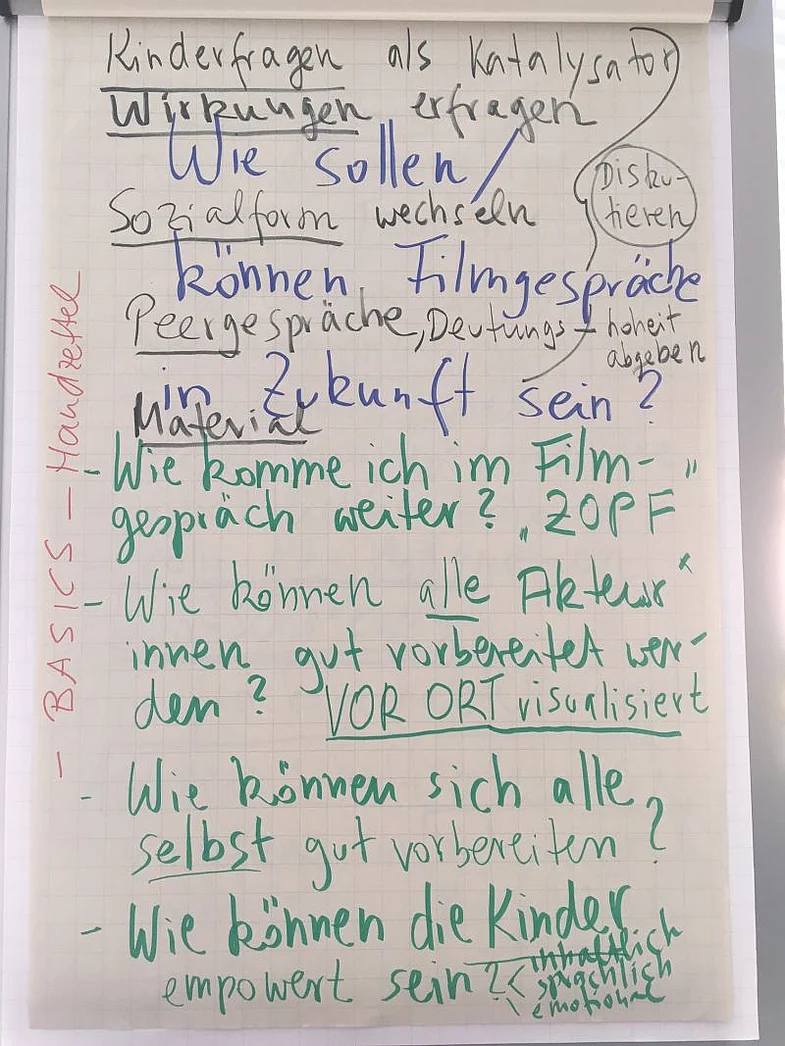 Kinderfragen als Katalysator
Wirkungen erfragen
Wie sollen /
Disku-
tieren
Sozialform wechseln
können Filmgespräche
Peergespräche, Deutungs-hoheit
abgeben
in Zukunft sein?
Material
- Wie komme ich im Film-
gespräch weiter? „ZOPF"
- Wie können alle Akteur*
innen gut vorbereitet wer-
den? VOR ORT visualisiert
- Wie können sich alle
selbst gut vorbereiten?
- Wie können die Kinder
empowert sein? < inhaltlich
sprachlich
emotional
- BASICS - Handzettel